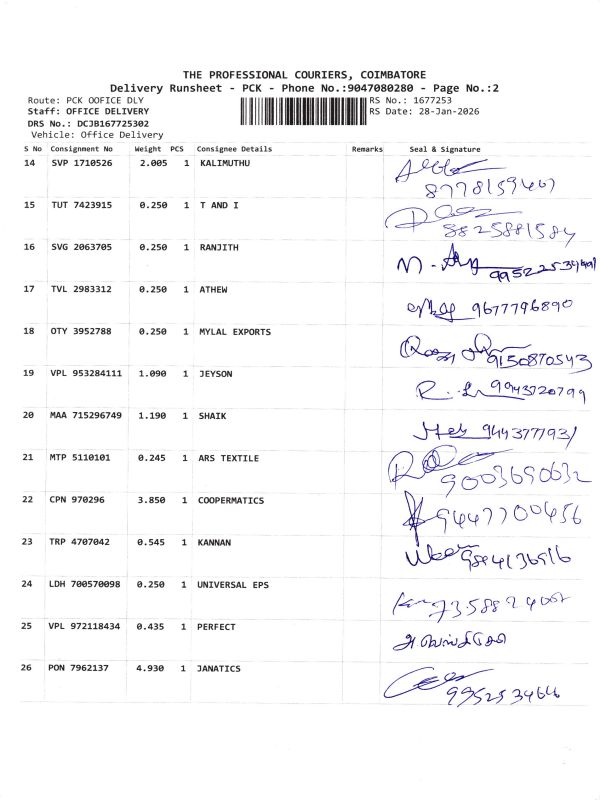 THE PROFESSIONAL COURIERS, COIMBATORE
Delivery Runsheet - PCK - Phone No.:9047080280 - Page No.:2
Route: PCK OOFICE DLY RS No.: 1677253
Staff: OFFICE DELIVERY RS Date: 28-Jan-2026
DRS No.: DCJB167725302
Vehicle: Office Delivery
S No Consignment No Weight PCS Consignee Details Remarks Seal & Signature
14 SVP 1710526 2.005 1 KALIMUTHU
8778159467
15 TUT 7423915 0.250 1 T AND I
8825881584
16 SVG 2063705 0.250 1 RANJITH
17 TVL 2983312 0.250 1 ATHEW
9677796890
18 OTY 3952788 0.250 1 MYLAL EXPORTS
9150870543
19 VPL 953284111 1.090 1 JEYSON
9943720799
20 MAA 715296749 1.190 1 SHAIK
9443777931
21 MTP 5110101 0.245 1 ARS TEXTILE
9003690632
22 CPN 970296 3.850 1 COOPERMATICS
9447700456
23 TRP 4707042 0.545 1 KANNAN
24 LDH 700570098 0.250 1 UNIVERSAL EPS
25 VPL 972118434 0.435 1 PERFECT
26 PON 7962137 4.930 1 JANATICS